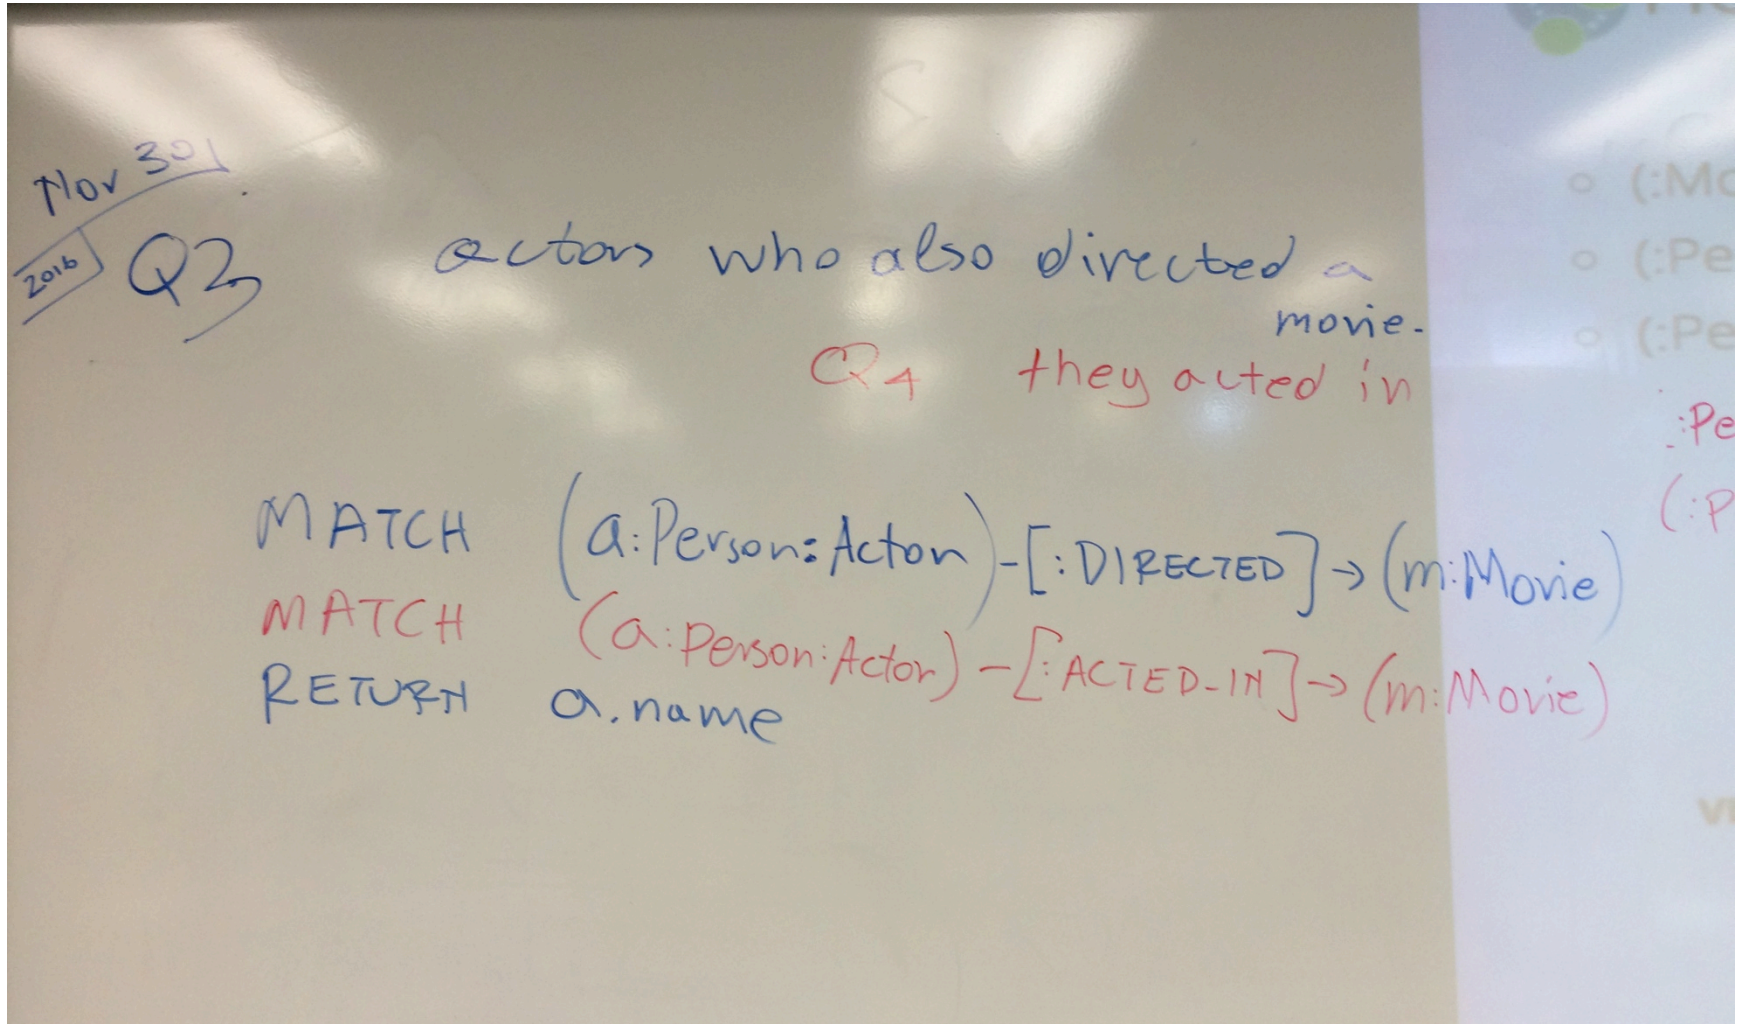 Nov 30
2016
Q3 actors who also directed a
movie.
Q4 they acted in
MATCH (a:Person:Actor)-[:DIRECTED]→(m:Movie)
MATCH (a:Person:Actor)-[:ACTED-IN]→(m:Movie)
RETURN a.name
(:Mo
(:Pe
(:Pe
:Pe
(:P